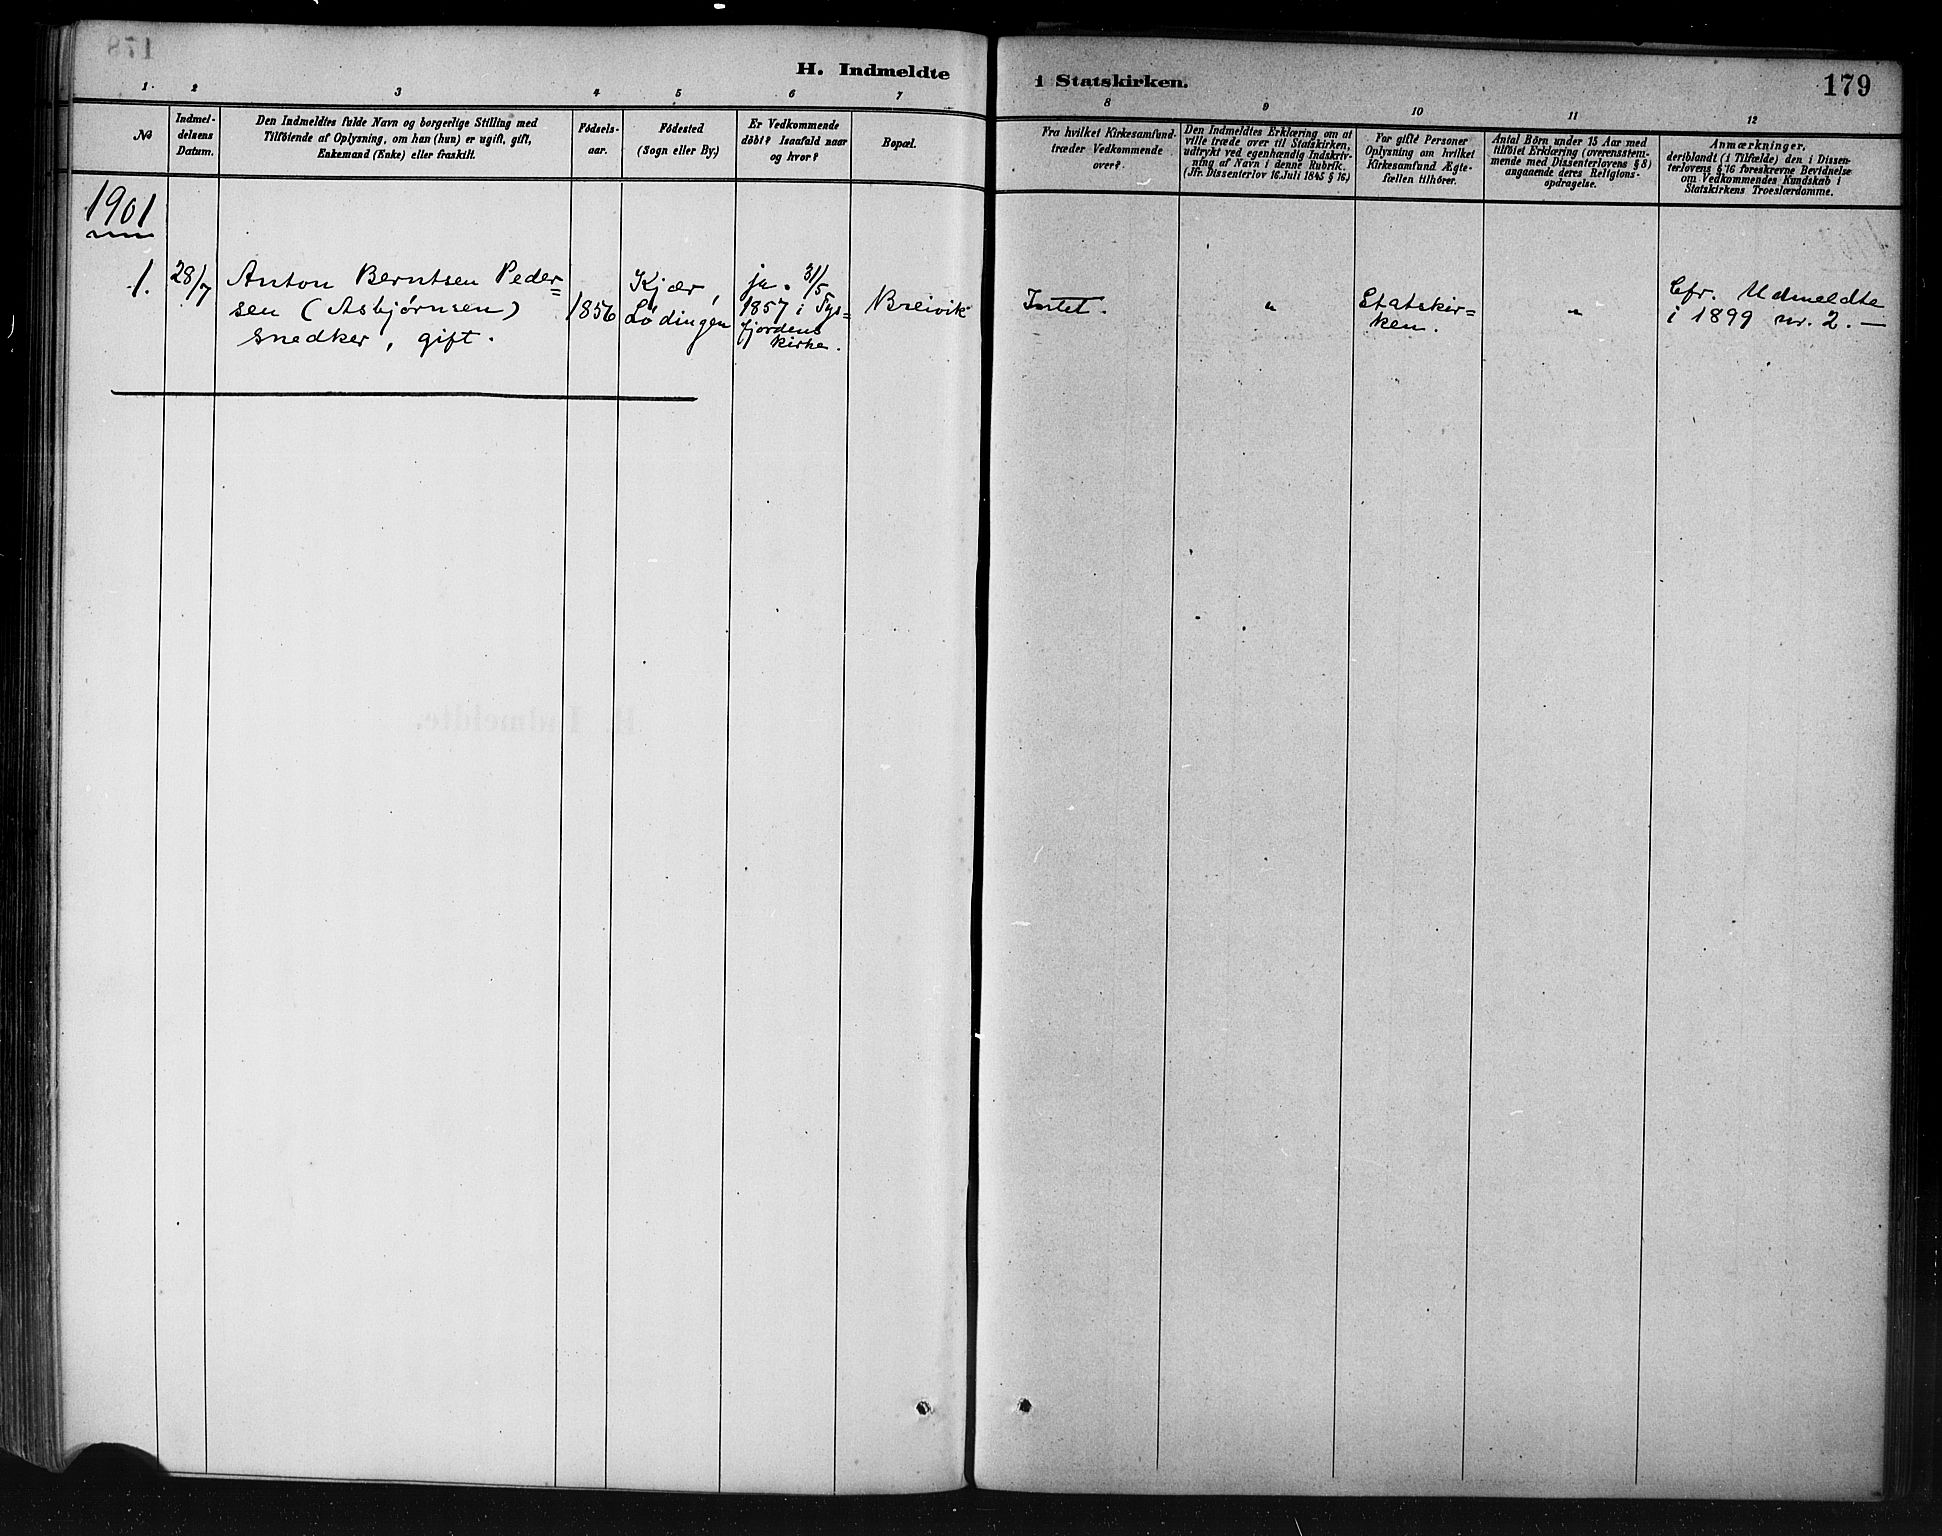 H. Indmeldte i Statskirken.
179
1. 2 3 4 5 6 7 8 9 10 11 12
No
Indmel-
delsens
Datum.
Den Indmeldtes fulde Navn og borgerlige Stilling med
Tilföiende af Oplysning, om han (hun) er ugift, gift,
Enkemand (Enke) eller fraskilt.
Födsels-
aar.
Födested
(Sogn eller By.)
Er Vedkommende
döbt? Isaafald naar
og hvor?
Bopæl.
Fra hvilket Kirkesamfund
træder Vedkommende
over?
Den Indmeldtes Erklæring om at
ville træde over til Statskirken,
udtrykt ved egenhændig Indskriv-
ning af Navn i denne Rubrik.
(Jfr. Dissenterlov 16. Juli 1845 § 16)
For gifte Personer
Oplysning om hvilket
Kirkesamfund Ægte-
fællen tilhörer.
Antal Börn under 15 Aar med
tilföiet Erklæring (overensstem-
mende med Dissenterlovens § 8)
angaaende deres Religions-
opdragelse.
Anmærkninger,
deriblandt (i Tilfælde) den i Dissen-
terlovens § 16 foreskrevne Bevidnelse
om Vedkommendes Kundskab i
Statskirkens Troeslærdomme.
1901
1.
28/7
Anton Berntsen Peder=
sen (Asbjørnsen)
Snedker, gift.
1856
Kjær,
Lødingen
ja. 31/5
1857 i Tys=
fjordens
kirke.
Breivik
Intet.
"
Statskir=
ken.
"
Cfr. Udmeldte
i 1899 nr. 2. —